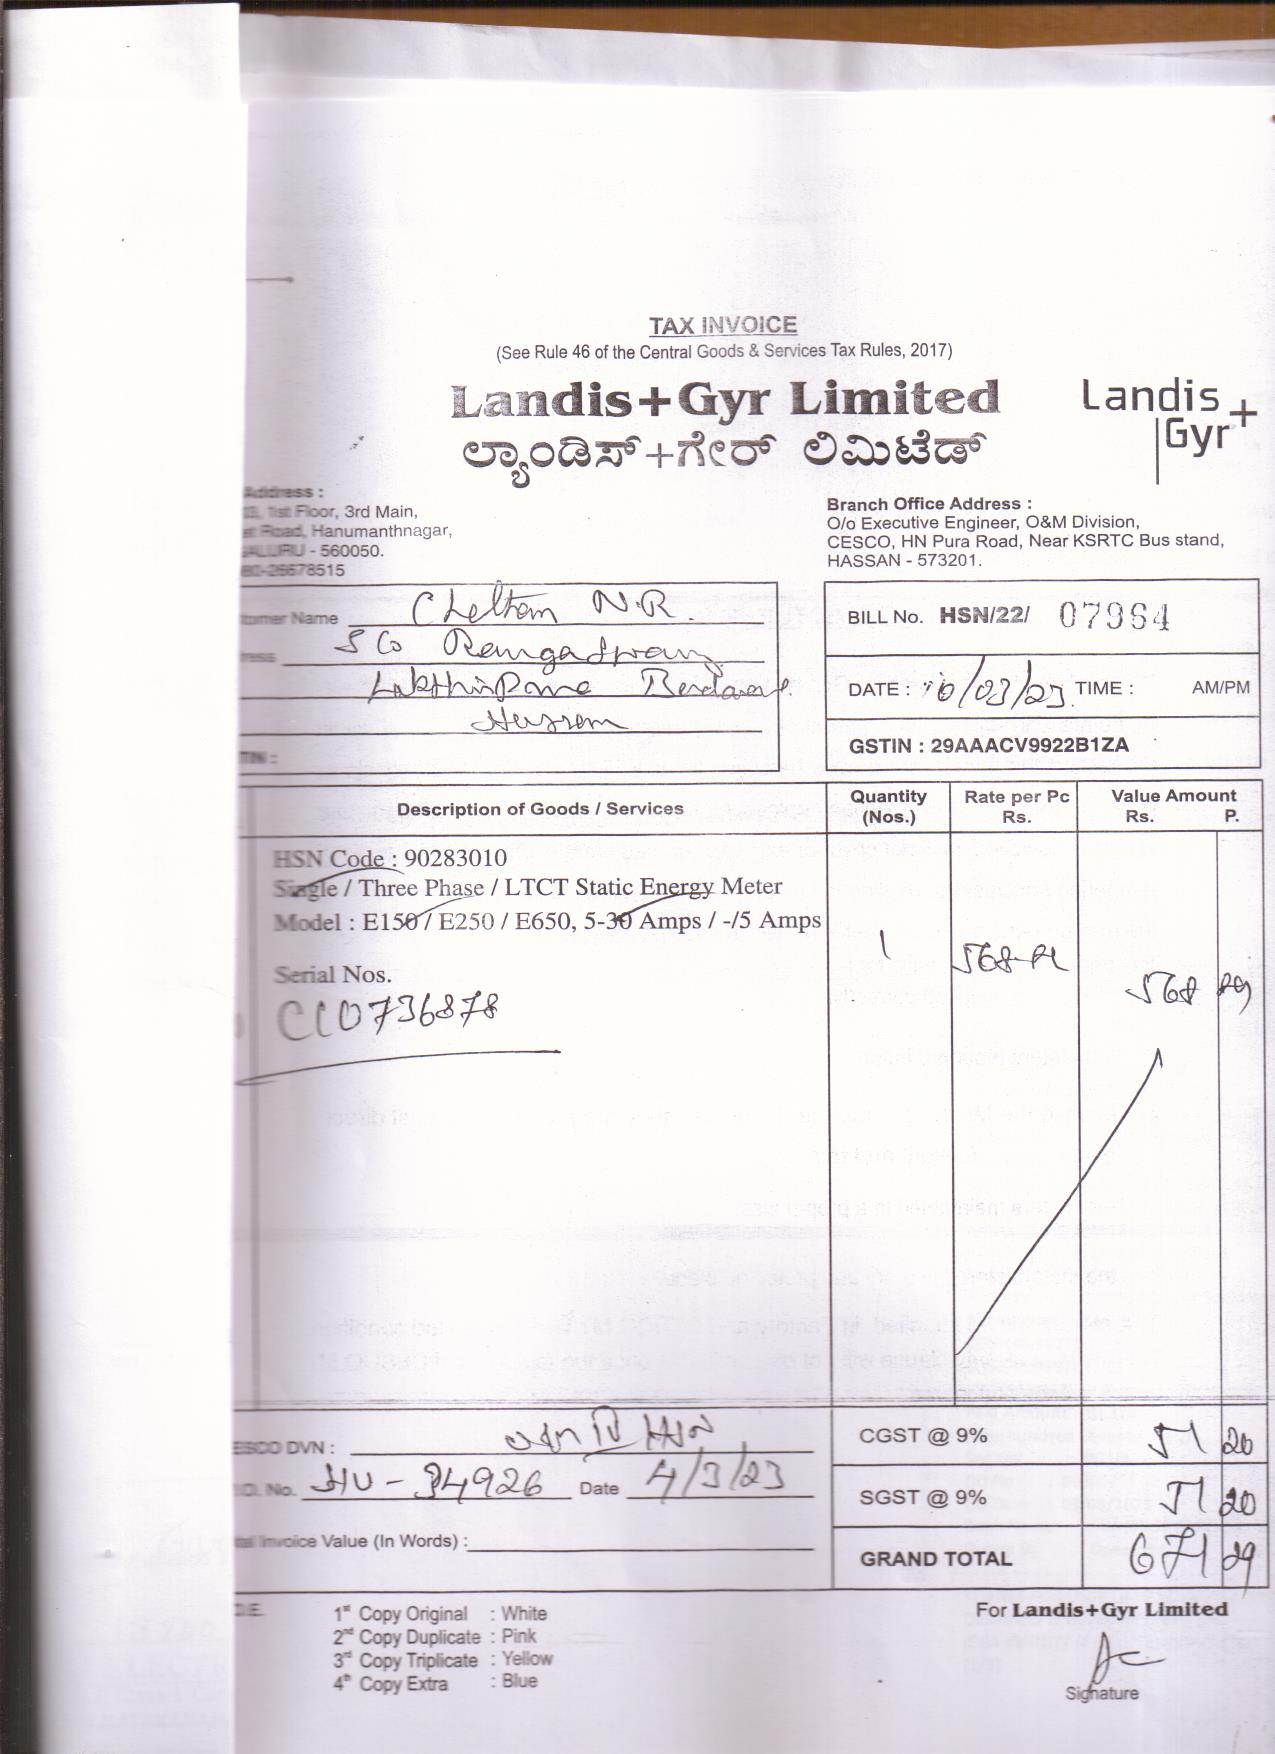 TAX INVOICE
(See Rule 46 of the Central Goods & Services Tax Rules, 2017)
Landis+Gyr Limited
ಲ್ಯಾಂಡಿಸ್+ಗೇರ್ ಲಿಮಿಟೆಡ್
Landis+
Gyr
Address :
1st Floor, 3rd Main,
Road, Hanumanthnagar,
- 560050.
26678515
Branch Office Address :
O/o Executive Engineer, O&M Division,
CESCO, HN Pura Road, Near KSRTC Bus stand,
HASSAN - 573201.
Name N.R.
BILL No. HSN/22/ 07964
DATE : 16/03/23 TIME : AM/PM
GSTIN : 29AAACV9922B1ZA
Description of Goods / Services
Quantity (Nos.)
Rate per Pc Rs.
Value Amount Rs. P.
HSN Code : 90283010
Single / Three Phase / LTCT Static Energy Meter
Model : E150 / E250 / E650, 5-30 Amps / -/5 Amps
1 568 568
Serial Nos.
CC0736878
DVN :
CGST @ 9% 51 20
No. HU - 34926 Date 4/3/23
SGST @ 9% 51 20
Invoice Value (In Words) :
GRAND TOTAL 671 29
1st Copy Original : White
2nd Copy Duplicate : Pink
3rd Copy Triplicate : Yellow
4th Copy Extra : Blue
For Landis+Gyr Limited
Signature